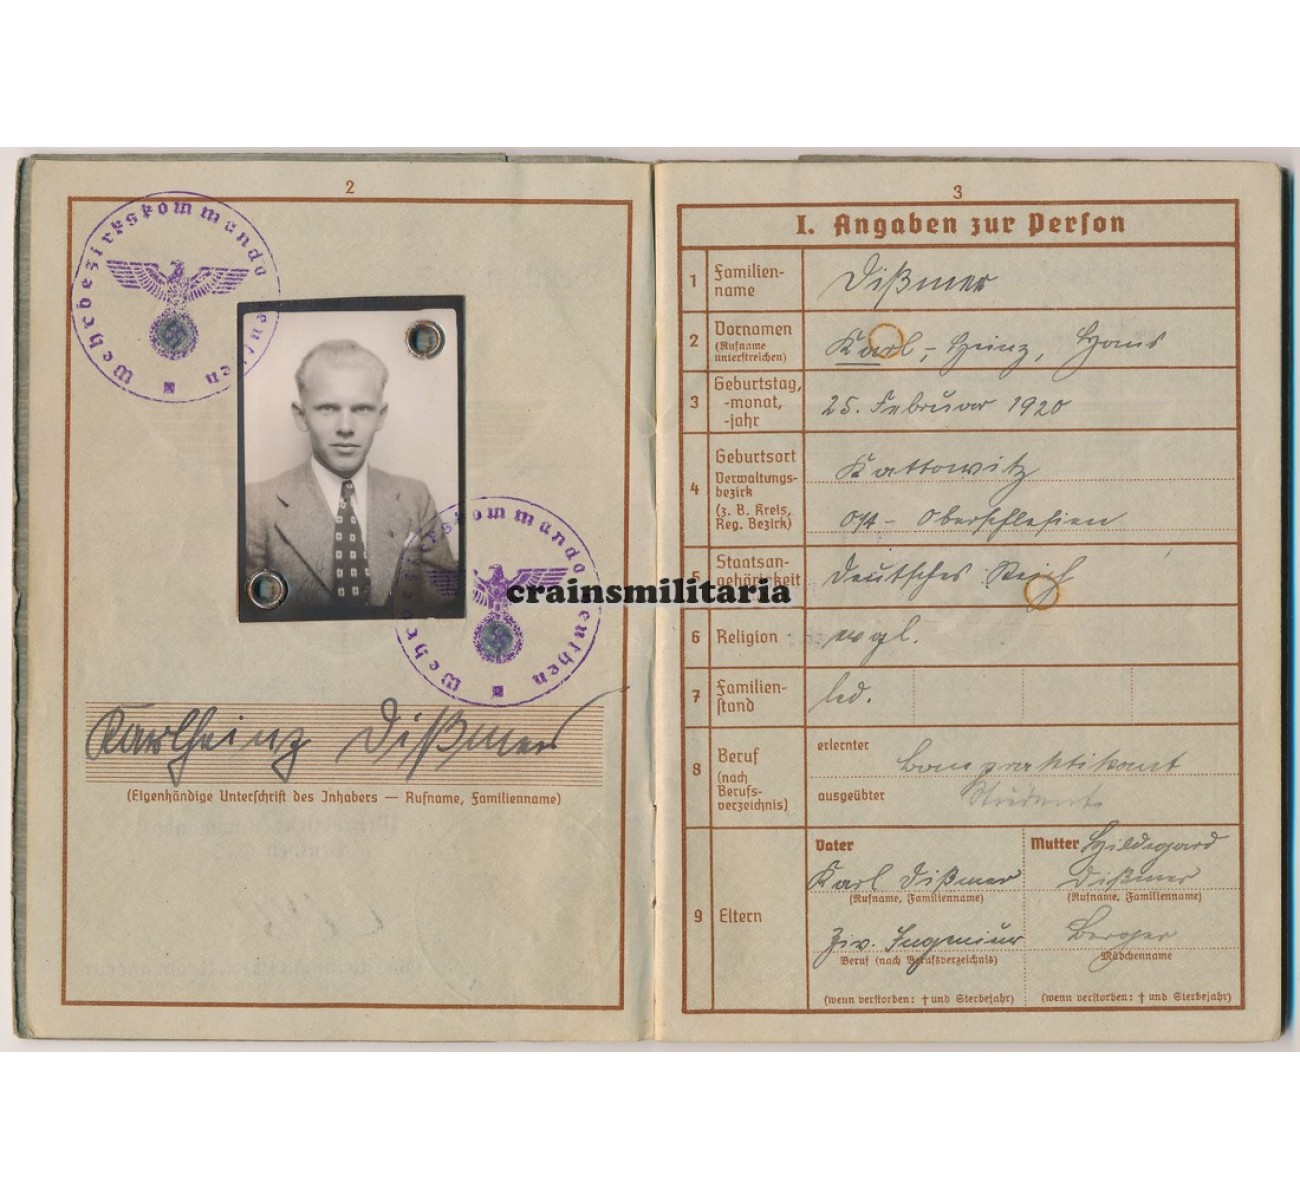 2
Wehrbezirkskommando Beuthen
Wehrbezirkskommando Beuthen
Karlheinz Dißmer
(Eigenhändige Unterschrift des Inhabers — Rufname, Familienname)
3
I. Angaben zur Person
1 Familien-
name
Dißmer
2 Vornamen
(Rufname
unterstreichen)
Karl-, Heinz, Hans
3 Geburtstag,
-monat,
-jahr
25. Februar 1920
4 Geburtsort
Verwaltungs-
bezirk
(z. B. Kreis,
Reg. Bezirk)
Kattowitz
Ost-Oberschlesien
5 Staatsan-
gehörigkeit
Deutsches Reich
6 Religion
evgl.
7 Familien-
stand
led.
8 Beruf
(nach
Berufs-
verzeichnis)
erlernter
Baupraktikant
ausgeübter
Student
9 Eltern
Vater
Karl Dißmer
(Rufname, Familienname)
Ziv. Ingenieur
Beruf (nach Berufsverzeichnis)
(wenn verstorben: † und Sterbejahr)
Mutter Hildegard
Dißmer
(Rufname, Familienname)
Berger
Mädchenname
(wenn verstorben: † und Sterbejahr)
crainsmilitaria